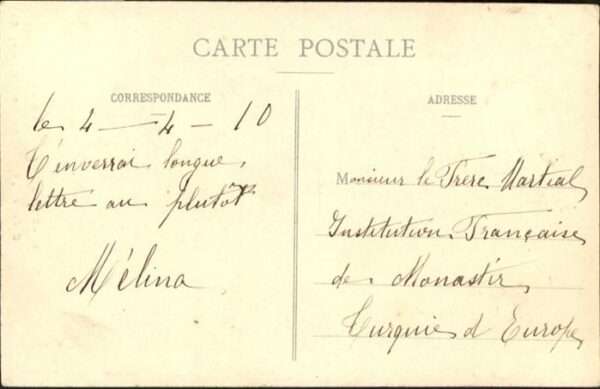 CARTE POSTALE
CORRESPONDANCE
le 4 — 4 — 10
T'enverrai longue
lettre au plutôt
Mélina
ADRESSE
Monsieur le Frère Martial
Institution Française
de Monastir
Turquie d'Europe